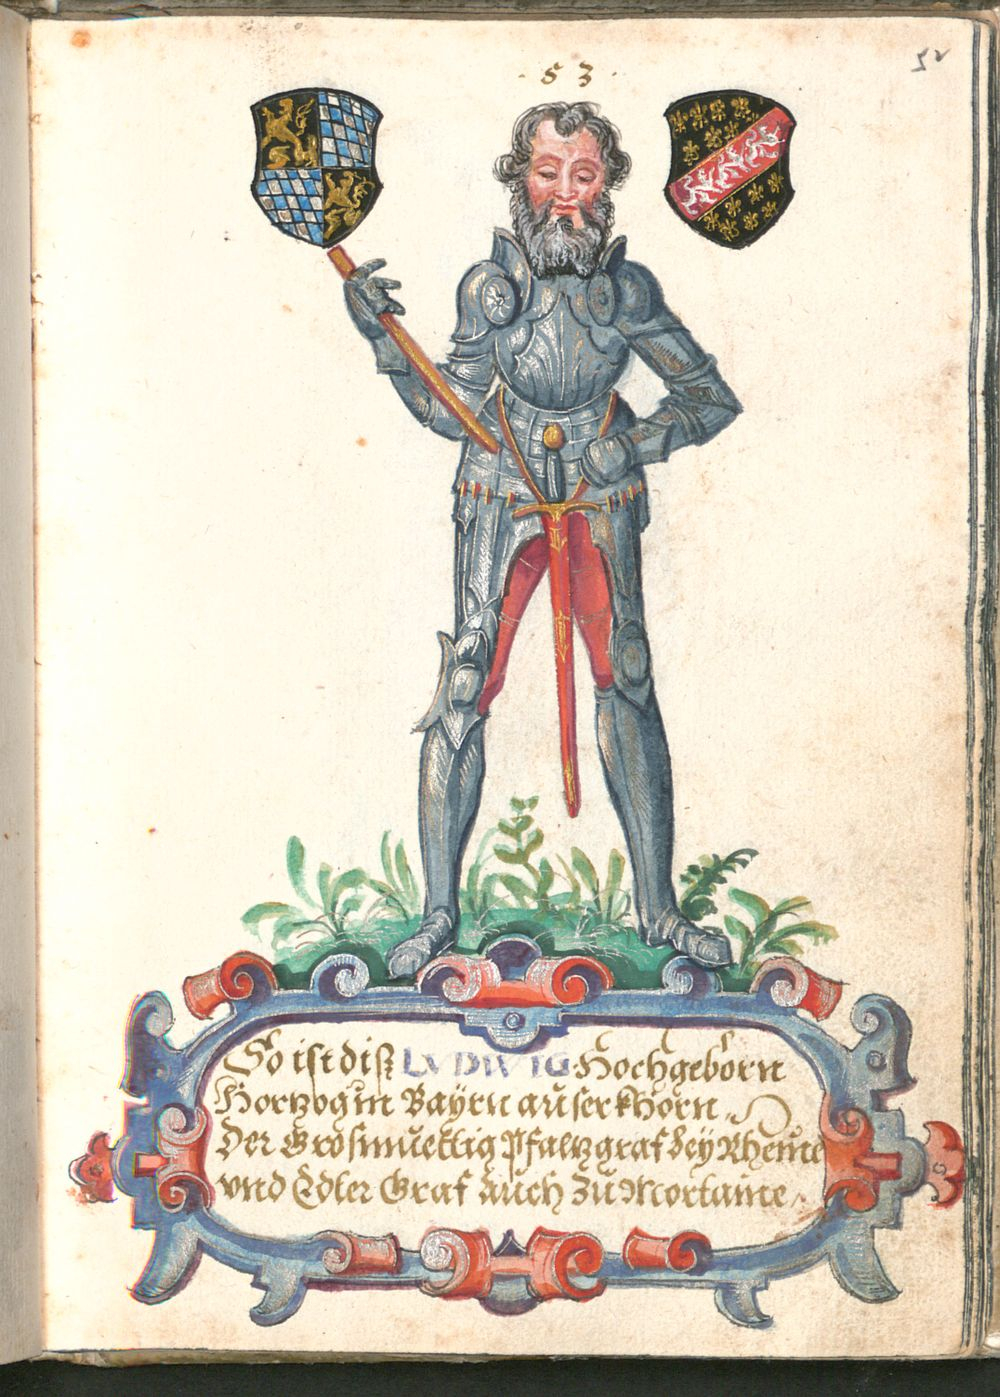 · 53 ·
52
So ist diß LVDWIG Hochgeborn
Hertzog in Bayrn auserkhorn
Der Grosmuettig Pfaltzgraf bey Rheine
vnd Edler Graf auch zu Mortaine